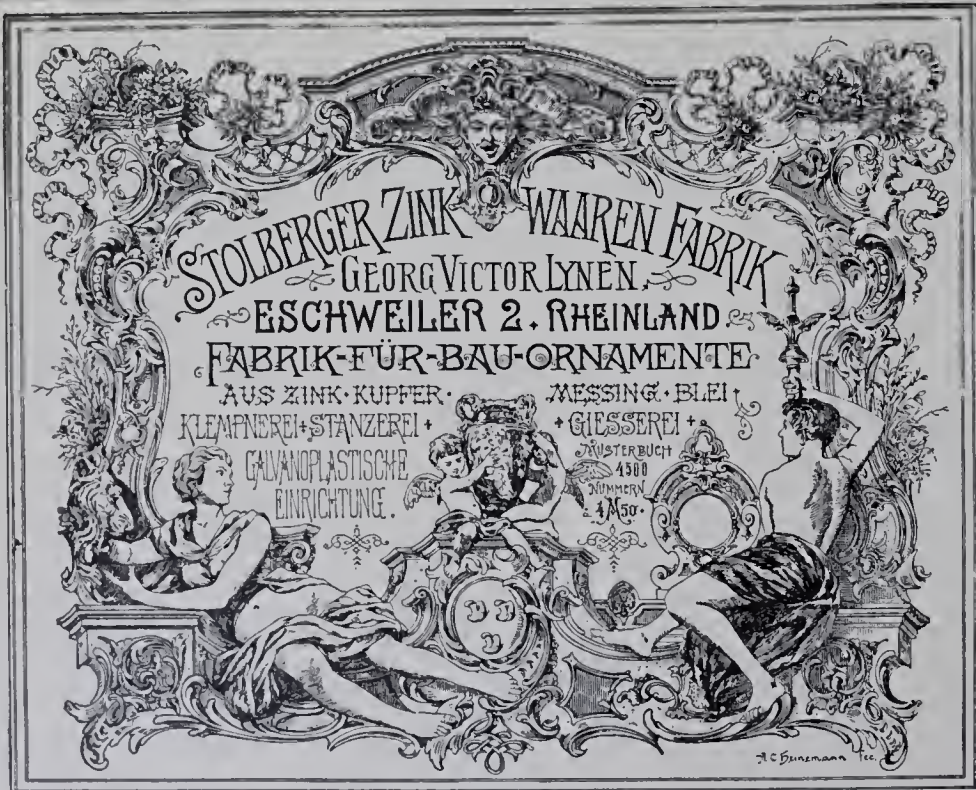 STOLBERGER ZINK WAAREN FABRIK
GEORG VICTOR LYNEN,
ESCHWEILER 2. RHEINLAND.
FABRIK-FÜR-BAU-ORNAMENTE
AUS ZINK·KUPFER· MESSING·BLEI·
KLEMPNEREI+STANZEREI+ +GIESSEREI+
GALVANOPLASTISCHE
EINRICHTUNG.
MUSTERBUCH
4500
NUMMERN
M50.
A C Heinemann fec.